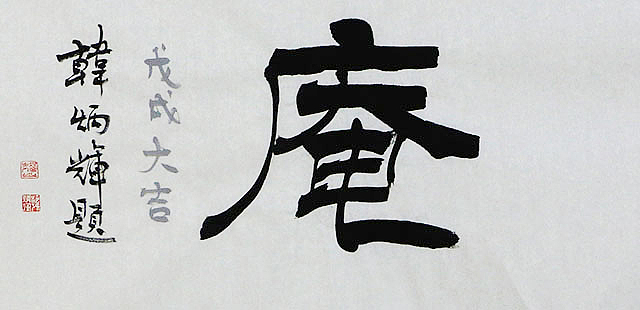 庵
戊戌大吉
韓炳輝題